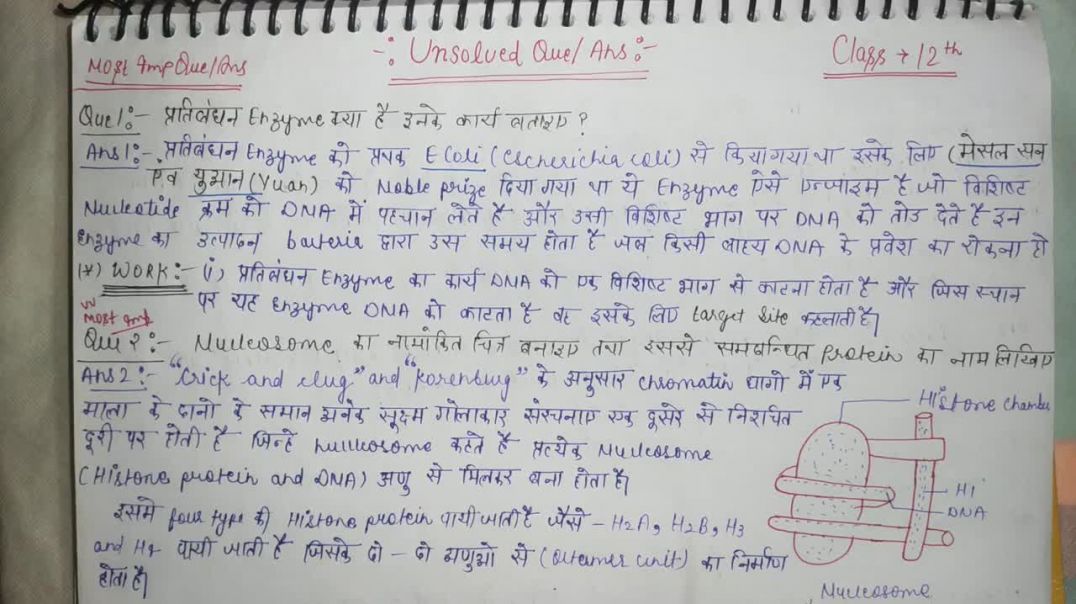 Most Imp Que/Ans
-: Unsolved Que/Ans:-
Class → 12th
Que1:- प्रतिबंधन Enzyme क्या है इनके कार्य बताइए?
Ans1:- प्रतिबंधन Enzyme को प्रथक E Coli (Escherichia coli) से किया गया था इसके लिए (मेसल सन
एवं युआन (Yuan) को Noble prize दिया गया था ये Enzyme ऐसे एन्जाइम है जो विशिष्ट
Nucleotide क्रम को DNA में पहचान लेते है और उसी विशिष्ट भाग पर DNA को तोड देते है इन
Enzyme का उत्पादन bacteria द्वारा उस समय होता है जब किसी बाहय DNA के प्रवेश का रोकना हो
(*) WORK:- (i) प्रतिबंधन Enzyme का कार्य DNA को एक विशिष्ट भाग से काटना होता है और जिस स्थान
पर यह Enzyme DNA को काटता है वह इसके लिए target site कहलाती है|
Most Imp
Que 2:- Nucleosome का नामांकित चित्र बनाइए तथा इससे सम्बन्धित protein का नाम लिखिए
Ans2:- "Crick and clug" and "Korenburg" के अनुसार chromatin धागो में एक
माला के दानो के समान अनेक सूक्ष्म गोलाकार संरचनाए एक दूसरे से निशचित
दूरी पर होती है जिन्हे nucleosome कहते है प्रत्येक Nucleosome
(Histone protein and DNA) अणु से मिलकर बना होता है|
इसमे four type की Histone protein पायी जाती है जैसे - H2A, H2B, H3
and H4 पायी जाती है जिसके दो - दो अणुओ से (octamer unit) का निर्माण
होता है|
Histone Chamber
H1
DNA
Nucleosome